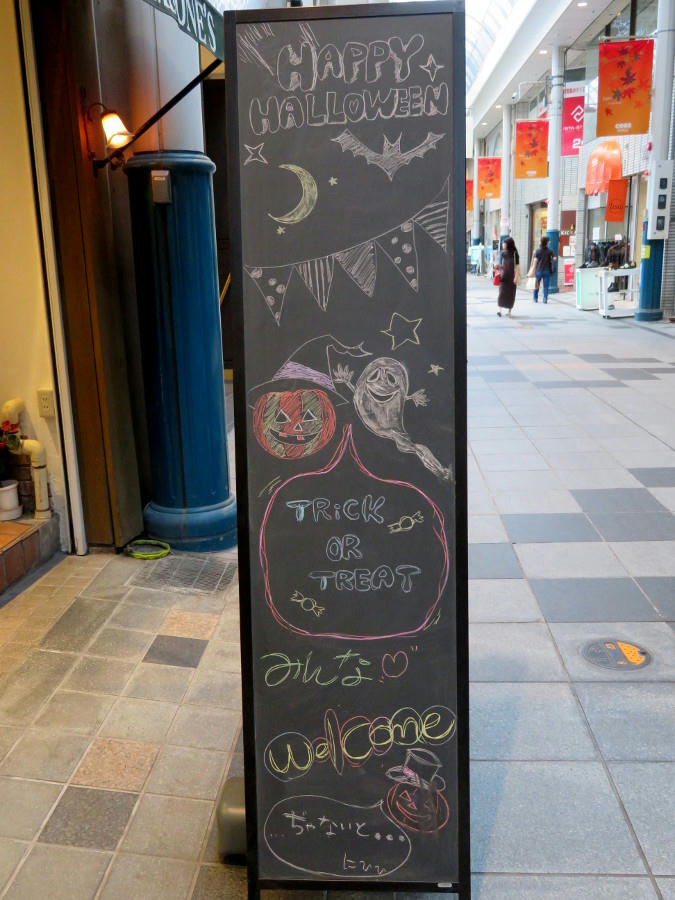 HAPPY
HALLOWEEN
TRiCK
OR
TREAT
みんな♡
welcome
...ぢゃないと...
にひひ